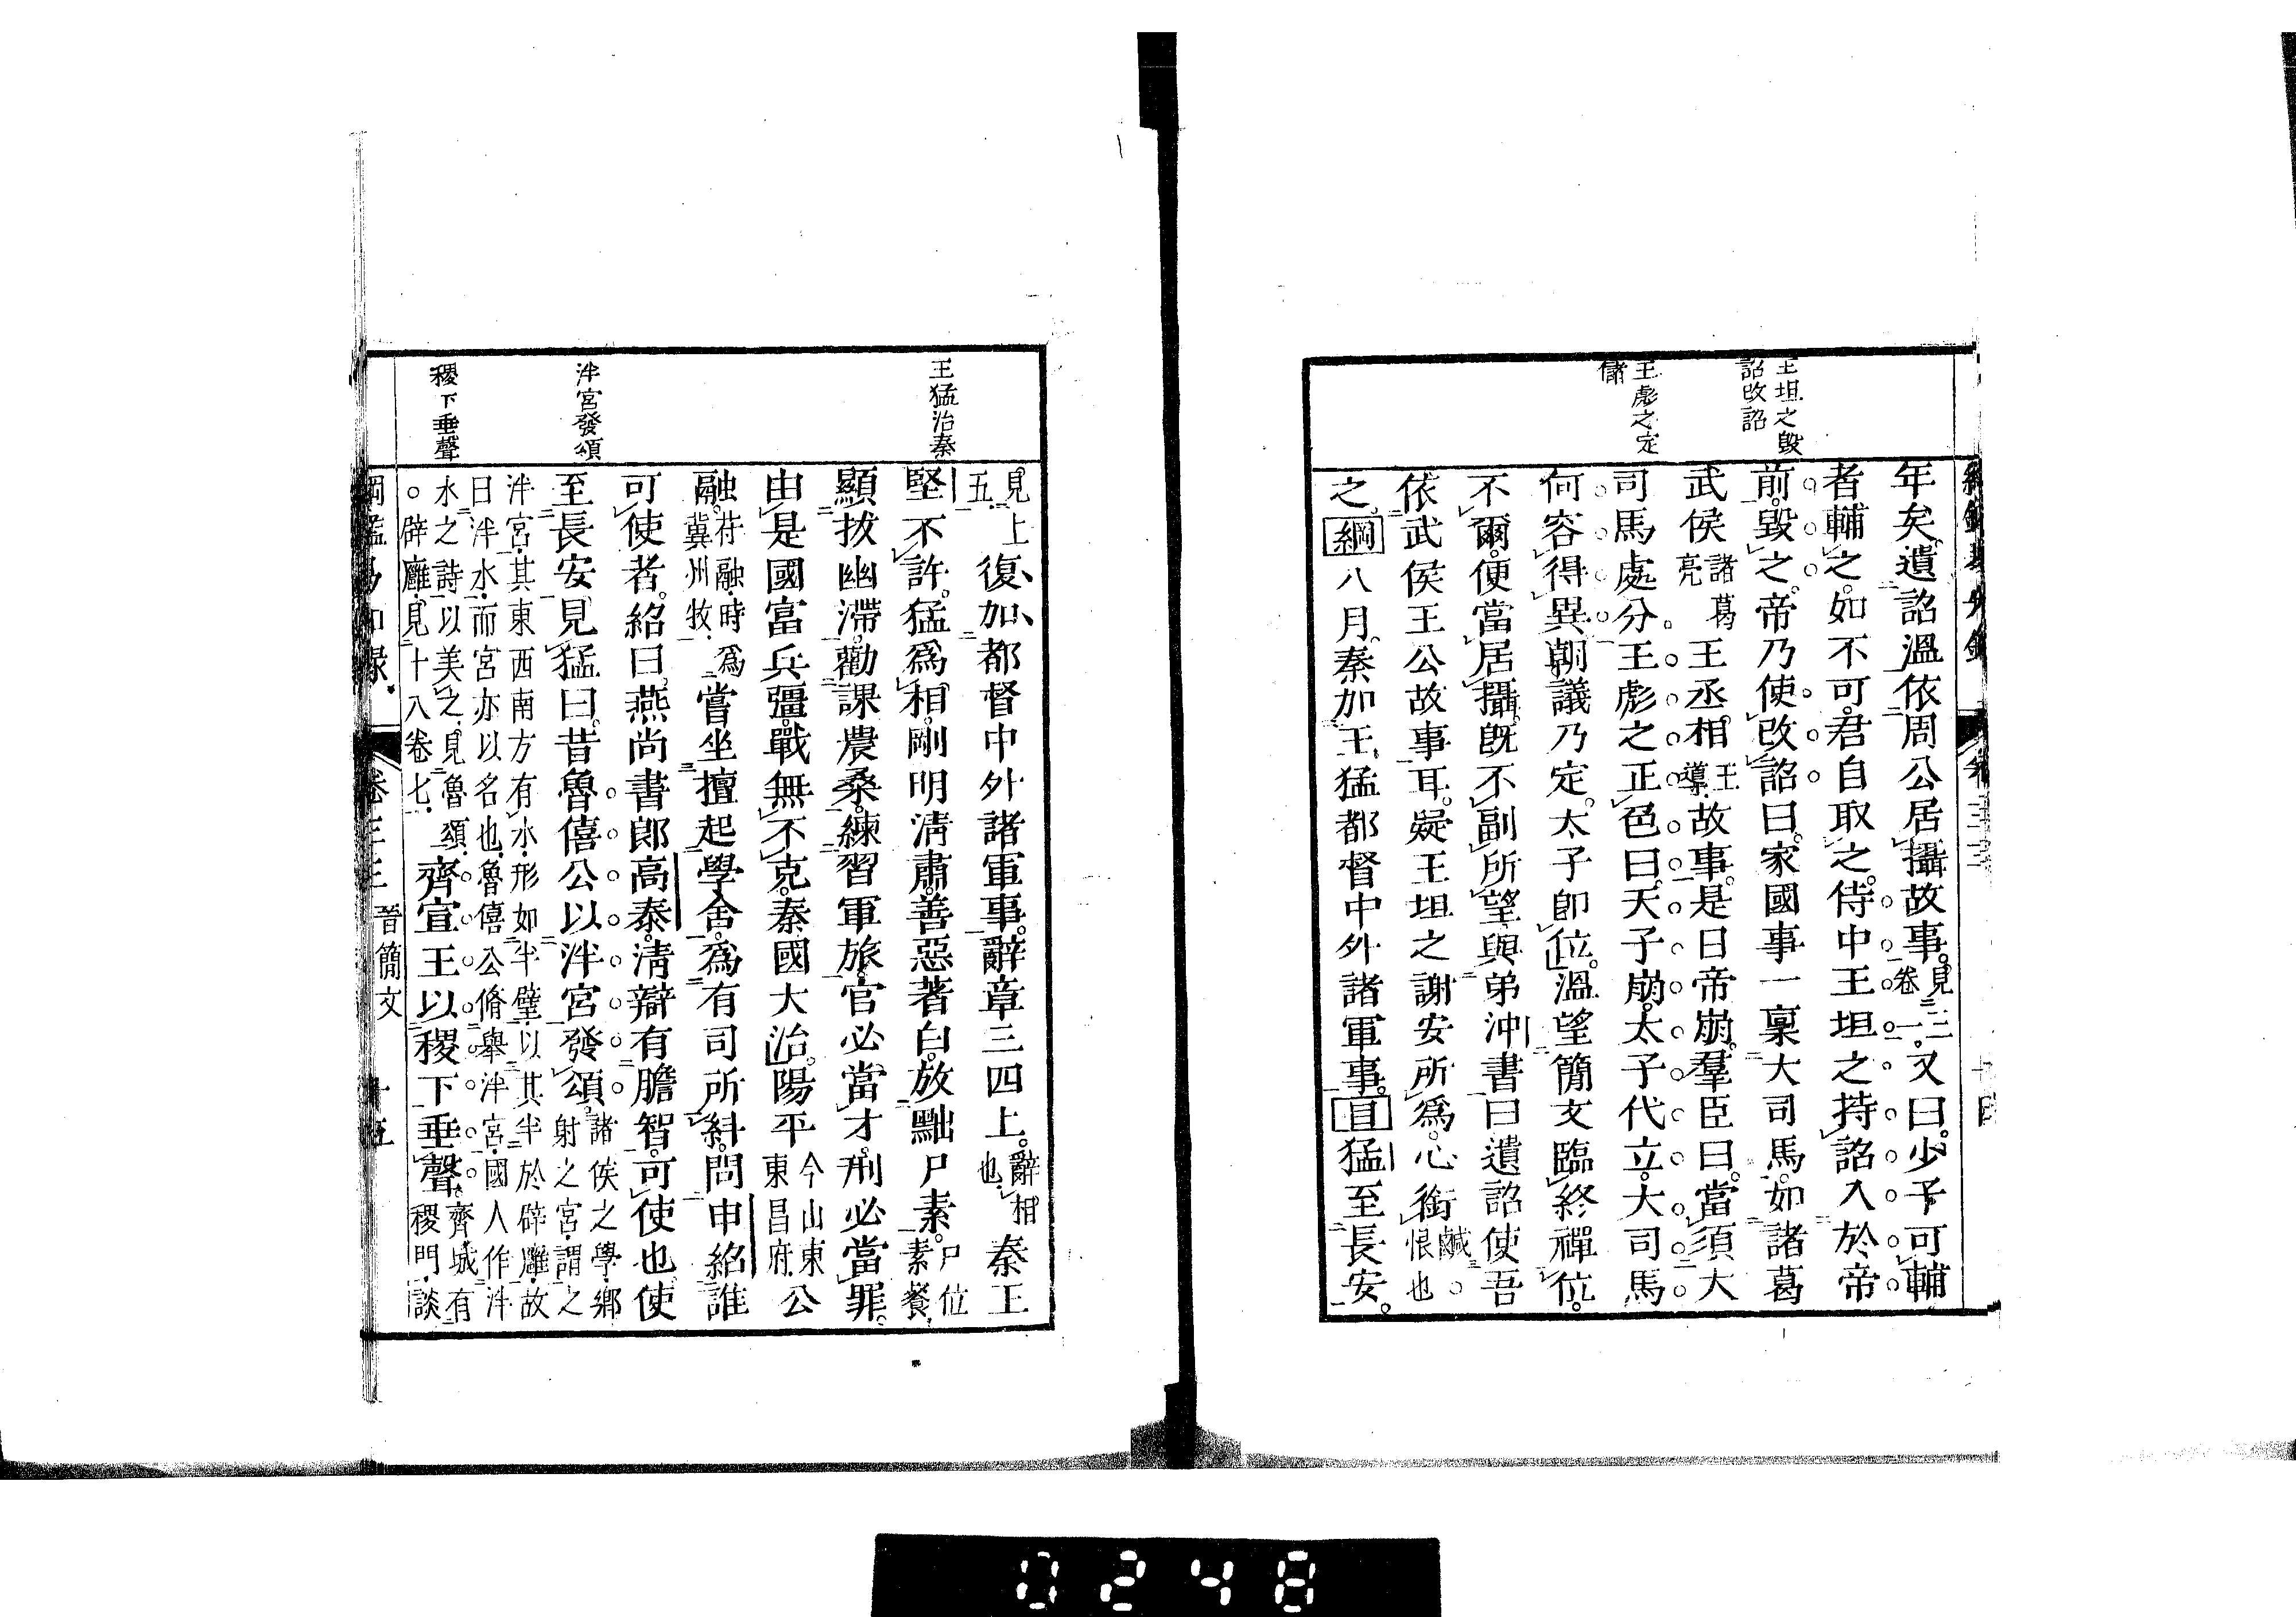 王坦之毀
詔改詔
王彪之定
儲
年矣遺詔溫依周公居攝故事見三卷一又曰少子可輔
者輔之如不可君自取之侍中王坦之持詔入於帝
前毀之帝乃使改詔曰家國事一稟大司馬如諸葛
武侯諸葛亮王丞相王導故事是日帝崩羣臣曰當須大
司馬處分王彪之正色曰天子崩太子代立大司馬
何容得異朝議乃定太子卽位溫望簡文臨終禪位
不爾便當居攝旣不副所望與弟沖書曰遺詔使吾
依武侯王公故事耳疑王坦之謝安所爲心銜鹹恨也
之綱八月秦加王猛都督中外諸軍事目猛至長安
王猛治秦
泮宮發頌
稷下垂聲
見上五復加都督中外諸軍事辭章三四上辭相也秦王
堅不許猛爲相剛明淸肅善惡著白放黜尸素尸位素餐
顯拔幽滯勸課農桑練習軍旅官必當才刑必當罪
由是國富兵彊戰無不克秦國大治陽平今山東東昌府公
融苻融時爲冀州牧嘗坐擅起學舍爲有司所糾問申紹誰
可使者紹曰燕尚書郎高泰淸辯有膽智可使也使
至長安見猛曰昔魯僖公以泮宮發頌諸侯之學鄉射之宮謂之
泮宮其東西南方有水形如半璧以其半於辟廱故
曰泮水而宮亦以名也魯僖公脩舉泮宮國人作泮
水之詩以美之見魯頌
○辟廱見十八卷七齊宣王以稷下垂聲齊城有稷門談
卷三三 晉簡文 十五
0248